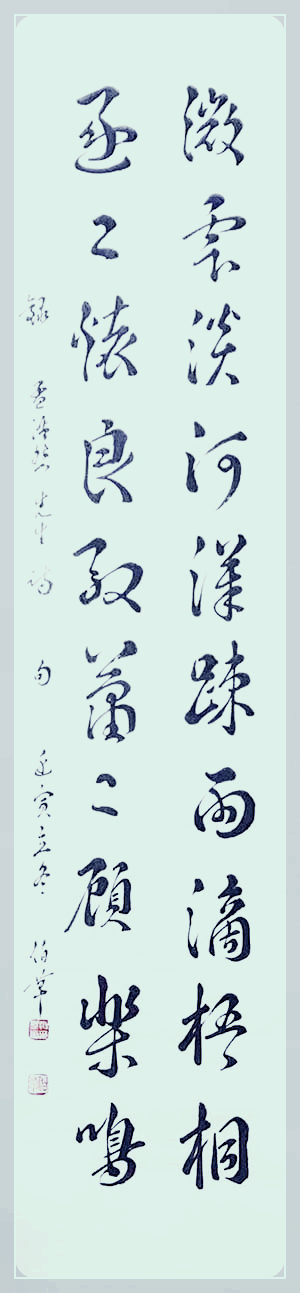 微雲淡河漢疎雨滴梧桐
逐〻懷良馭蕭〻顧樂鳴
錄 孟浩然先生詩句 壬寅立冬 伯